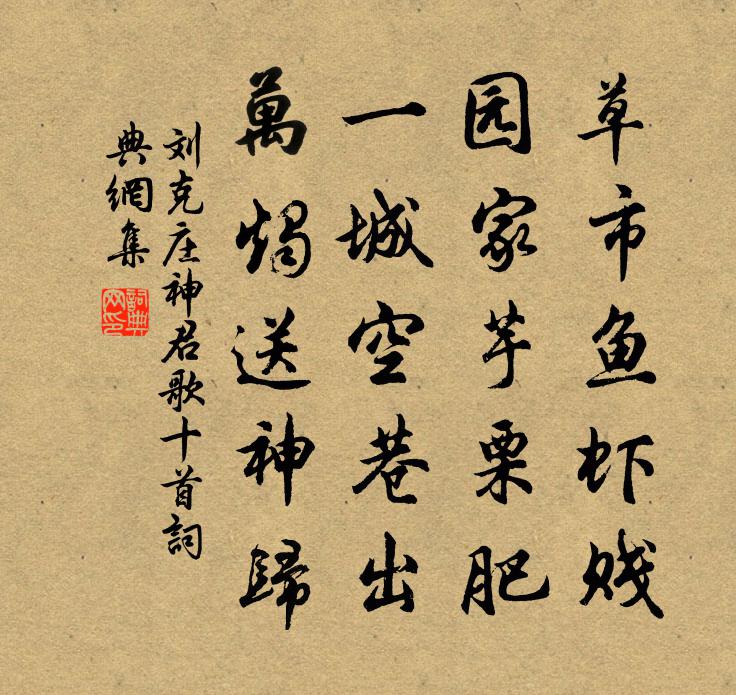 草市鱼虾贱
园家芋栗肥
一城空巷出
萬燭送神歸
刘克庄神君歌十首詞
典網集
詞典
网印